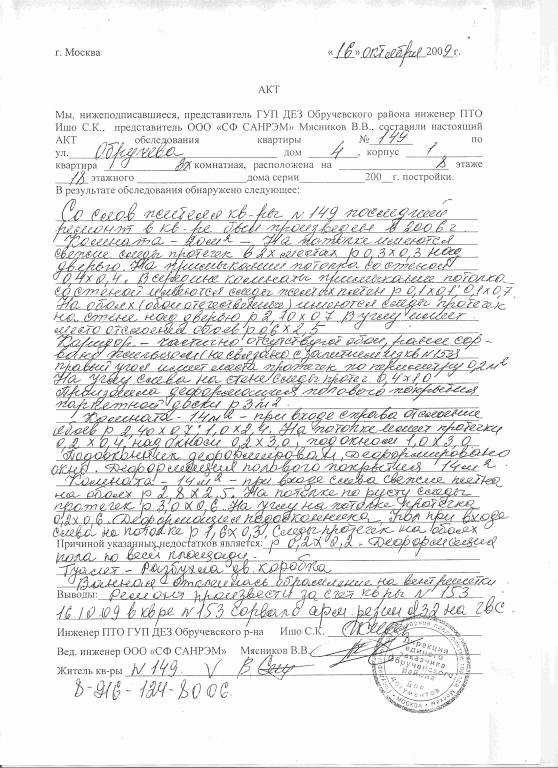 г. Москва «16» октября 2009 г.
АКТ
Мы, нижеподписавшиеся, представитель ГУП ДЕЗ Обручевского района инженер ПТО
Ишо С.К., представитель ООО «СФ САНРЭМ» Мясников В.В., составили настоящий
АКТ обследования квартиры № 149 по
ул. Обручева дом 4, корпус 1
квартира 3х комнатная, расположена на 8 этаже
18 этажного дома серии 200 г. постройки.
В результате обследования обнаружено следующее:
Со слов жителя кв-ры N 149 последний
ремонт в кв-ре был произведён в 2006 г.
Комната - 20 м² - На потолке имеются
свежие следы протечек в 2х местах р 0,3х0,3 над
дверью. На примыкании потолра со стеной
0,4х0,4. В середине комнаты примыкание потолка
со стеной имеются следы желтых пятен р 0,1х0,1; 0,1х0,7.
На обоях (обои отечественные) имеются следы протечек
на стене над дверью р 2,10х0,7 В углу имеет
место отслоения обоев р 0,6х2,5
Коридор - частично отсутствуют обои, ранее сор-
ваны жильцом (не связано с залитием из кв N 153)
правый угол имеет место протечек по периметру 0,2 м²
На углу слева на стене следы протеч 0,4х80
Произошла деформация полового покрытия
паркетной доски р 3 м²
Комната - 14 м² - при входе справа отслоение
обоев р 2,40х0,7; 1,0х2,4. На потолке имеет протечки
0,2х0,4, над окном 0,2х3,0, под окном 1,0х3,0
Подоконник деформирован, деформировано
окно. Деформация полового покрытия 14 м²
Комната - 14 м² - при входе слева свежие пятна
на обоях р 2,8х2,5. На потолке по русту следы
протечек р 3,0х0,6. На углу на потолке протечка
0,2х0,6. Деформация подоконника. Пол при входе
слева на потолке р 1,6х0,3, следы протечек на обоях
Причиной указанных недостатков является: р 0,2х0,2. Деформация
пола по всей площади.
Туалет - Разбухла дв. коробка
Ванная отслоилась обрамление на вентрешетки
Выводы: Ремонт произвести за счет кв-ры N 153
16.10.09 в кв-ре N 153 сорвало арм резин d 32 на ГВС.
Инженер ПТО ГУП ДЕЗ Обручевского р-на Ишо С.К.
Вед. инженер ООО «СФ САНРЭМ» Мясников В.В.
Житель кв-ры N 149 V
8-916-124-80 06
Дирекция
единого
заказчика
Обручевского
района
Для
документов